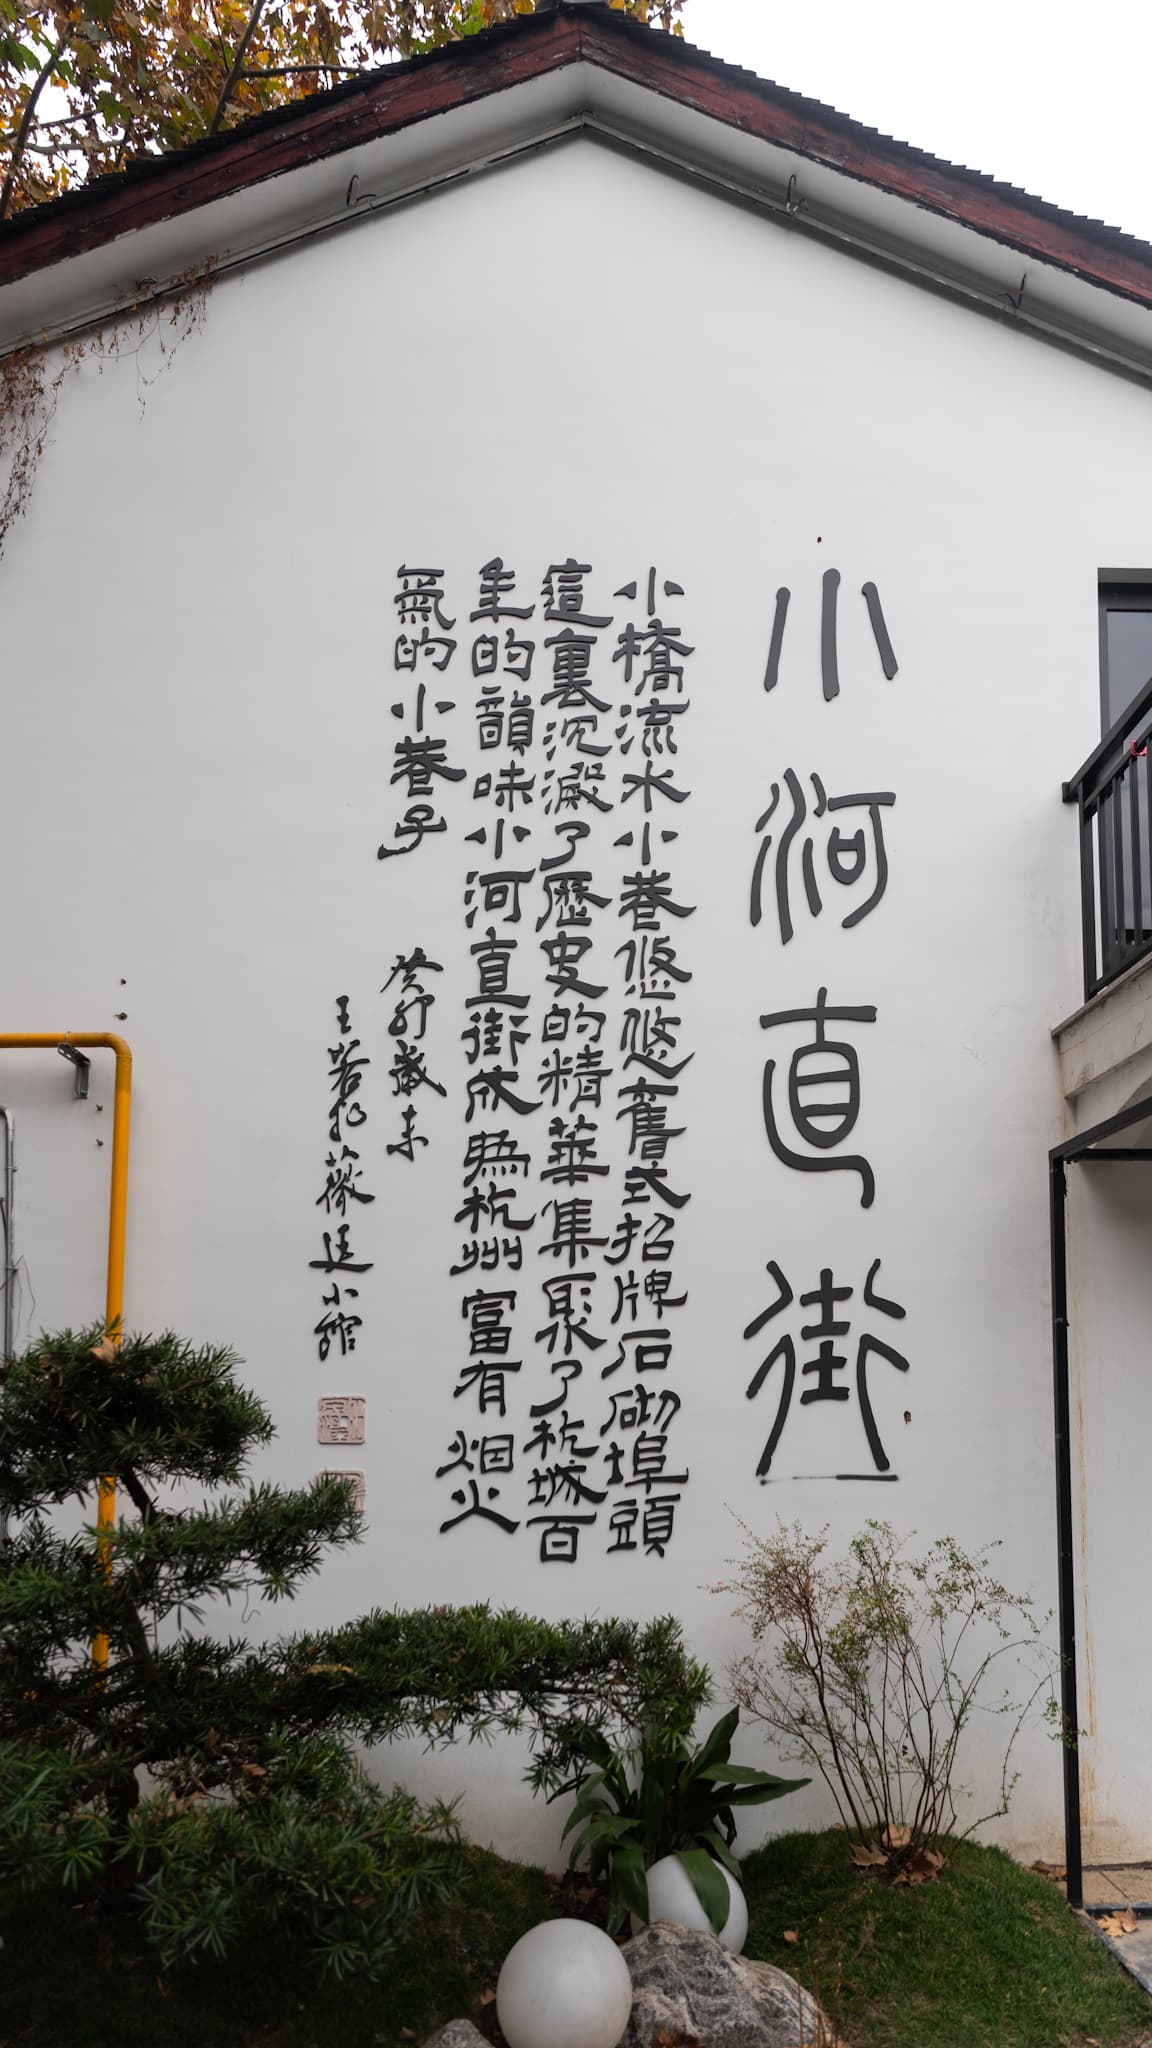 小河直街
小橋流水小巷悠悠舊式招牌石砌埠頭
這裏沉澱了歷史的精華集聚了杭城百
年的韻味小河直街成為杭州富有烟火
氣的小巷子
癸卯歲末
王若 薇廷小館